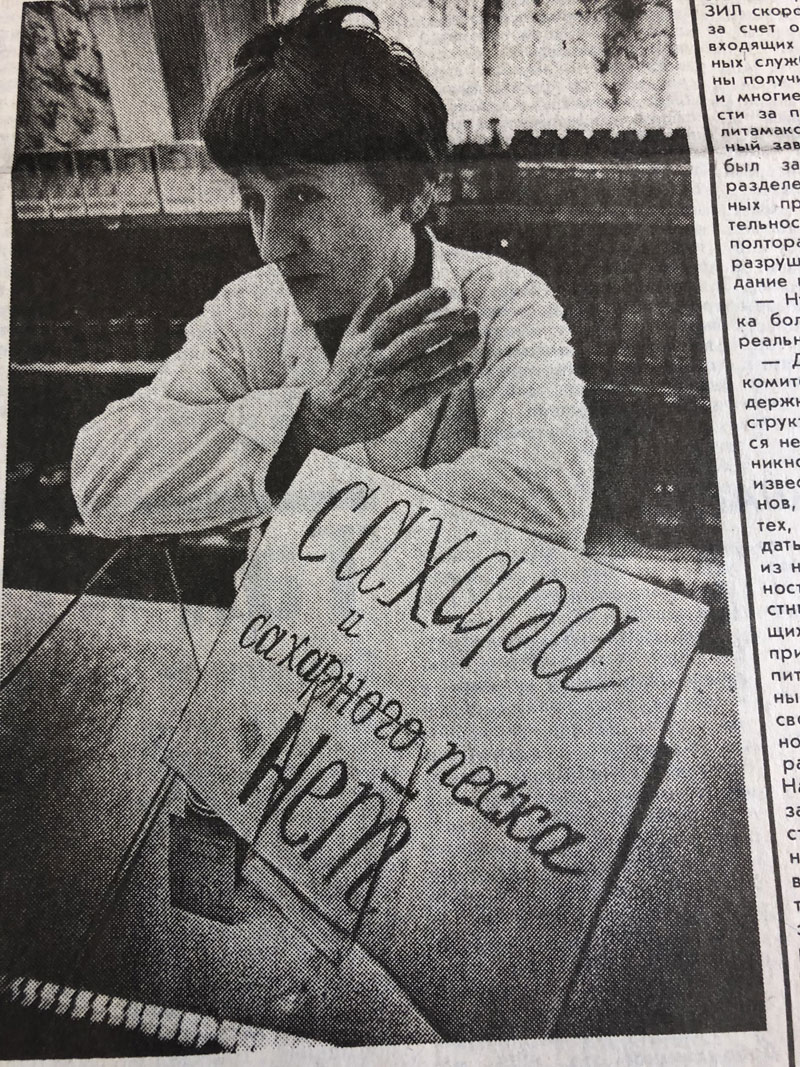 сахара
и
сахарного песка
Нет
ЗИЛ скоро
за счет о
входящих
ных служб
ны получи
и многие
сти за п
литамакс
ный зав
был за
разделе
ных пр
тельнос
полтора
разруш
дание
— Н
ка бол
реальн
— Д
комите
держ
структ
ся не
никно
извес
нов,
тех,
дать
из н
ност
стн
щих
при
пит
ны
сво
но
ра
На
за
ст
н
в
т
з